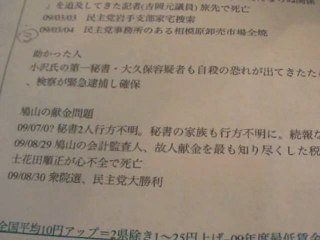 を追及してきた記者(吉岡元議員)旅先で死亡
09/03/03 民主党岩手支部家宅捜索
09/03/04 民主党事務所のある相模原卸売市場全焼
助かった人
小沢氏の第一秘書・大久保容疑者も自殺の恐れが出てきたた
、検察が緊急逮捕し確保
鳩山の献金問題
09/07/0? 秘書2人行方不明。秘書の家族も行方不明に。続報な
09/08/29 鳩山の会計監査人、故人献金を最も知り尽くした税
士花田順正が心不全で死亡
09/08/30 衆院選、民主党大勝利
全国平均10円アップ=2県除き1～25円上げ、09年度最低賃金